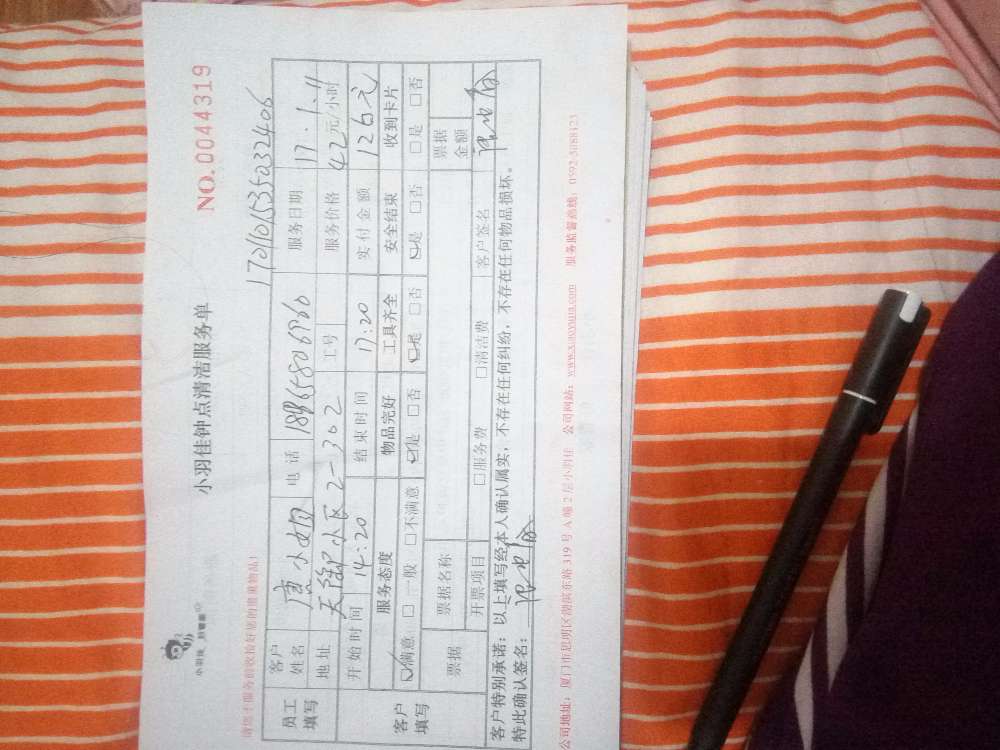 小羽佳钟点清洁服务单
NO.0044319
请您在服务前收拾好您的贵重物品！
1701101535032406
员工填写 客户姓名 唐小姐 电话 18965806960 服务日期 17.1.11
地址 小区2-302 工号 服务价格 42元/小时
开始时间 14:20 结束时间 17:20 实付金额 126元
客户填写 服务态度 物品完好 工具齐全 安全结束 收到卡片
☑满意 □一般 □不满意 ☑是 □否 ☑是 □否 ☑是 □否 □是 □否
票据 票据名称 票据金额
开票项目 □服务费 □清洁费 客户签名
客户特别承诺：以上填写经本人确认属实，不存在任何纠纷，不存在任何物品损坏。
特此确认签名：
公司地址：厦门市思明区湖滨东路319号A幢2层小羽佳 公司网站：www.xiaoyujia.com 服务监督热线：0592-5088123